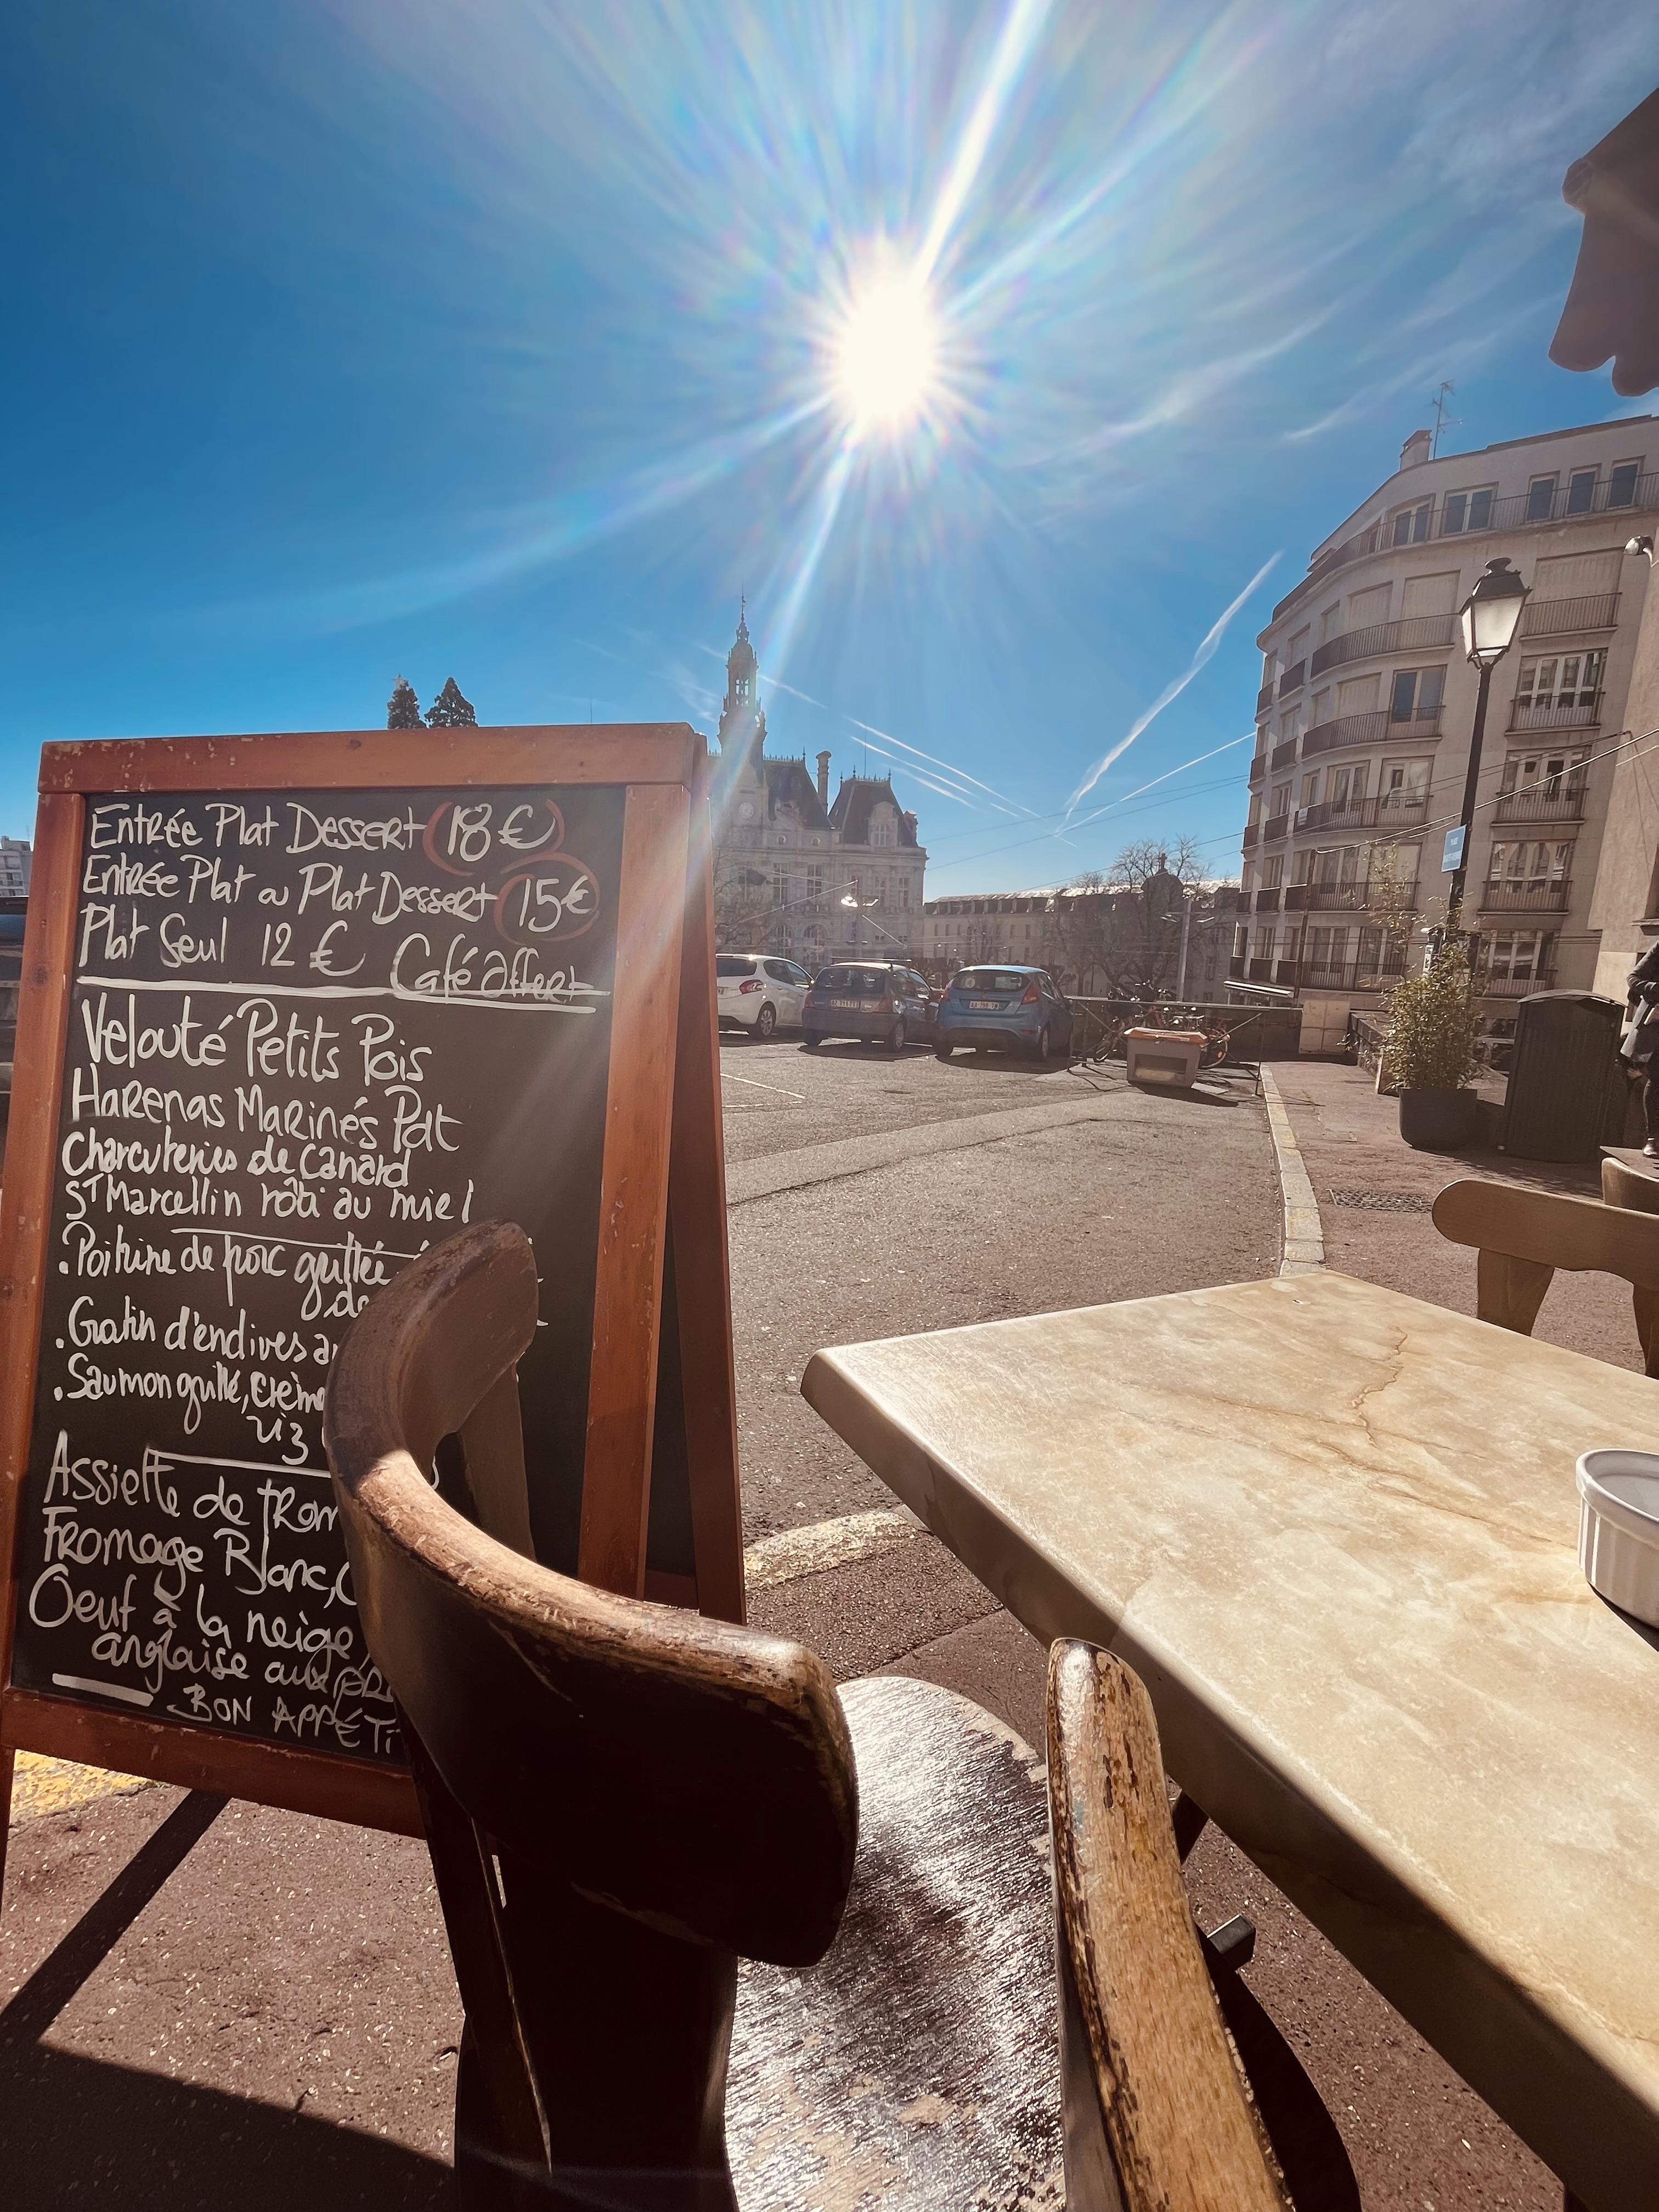 Entrée Plat Dessert 18€
Entrée Plat ou Plat Dessert 15€
Plat Seul 12€ Café offert
Velouté Petits Pois
Harengs Marinés Pdt
Charcuteries de Canard
St Marcellin rôti au miel
. Poitrine de porc grillée
de
. Gratin d'endives
. Saumon grillé, crème
riz
Assiette de
Fromage Blanc,
Oeuf à la neige,
anglaise aux
BON APPÉTI